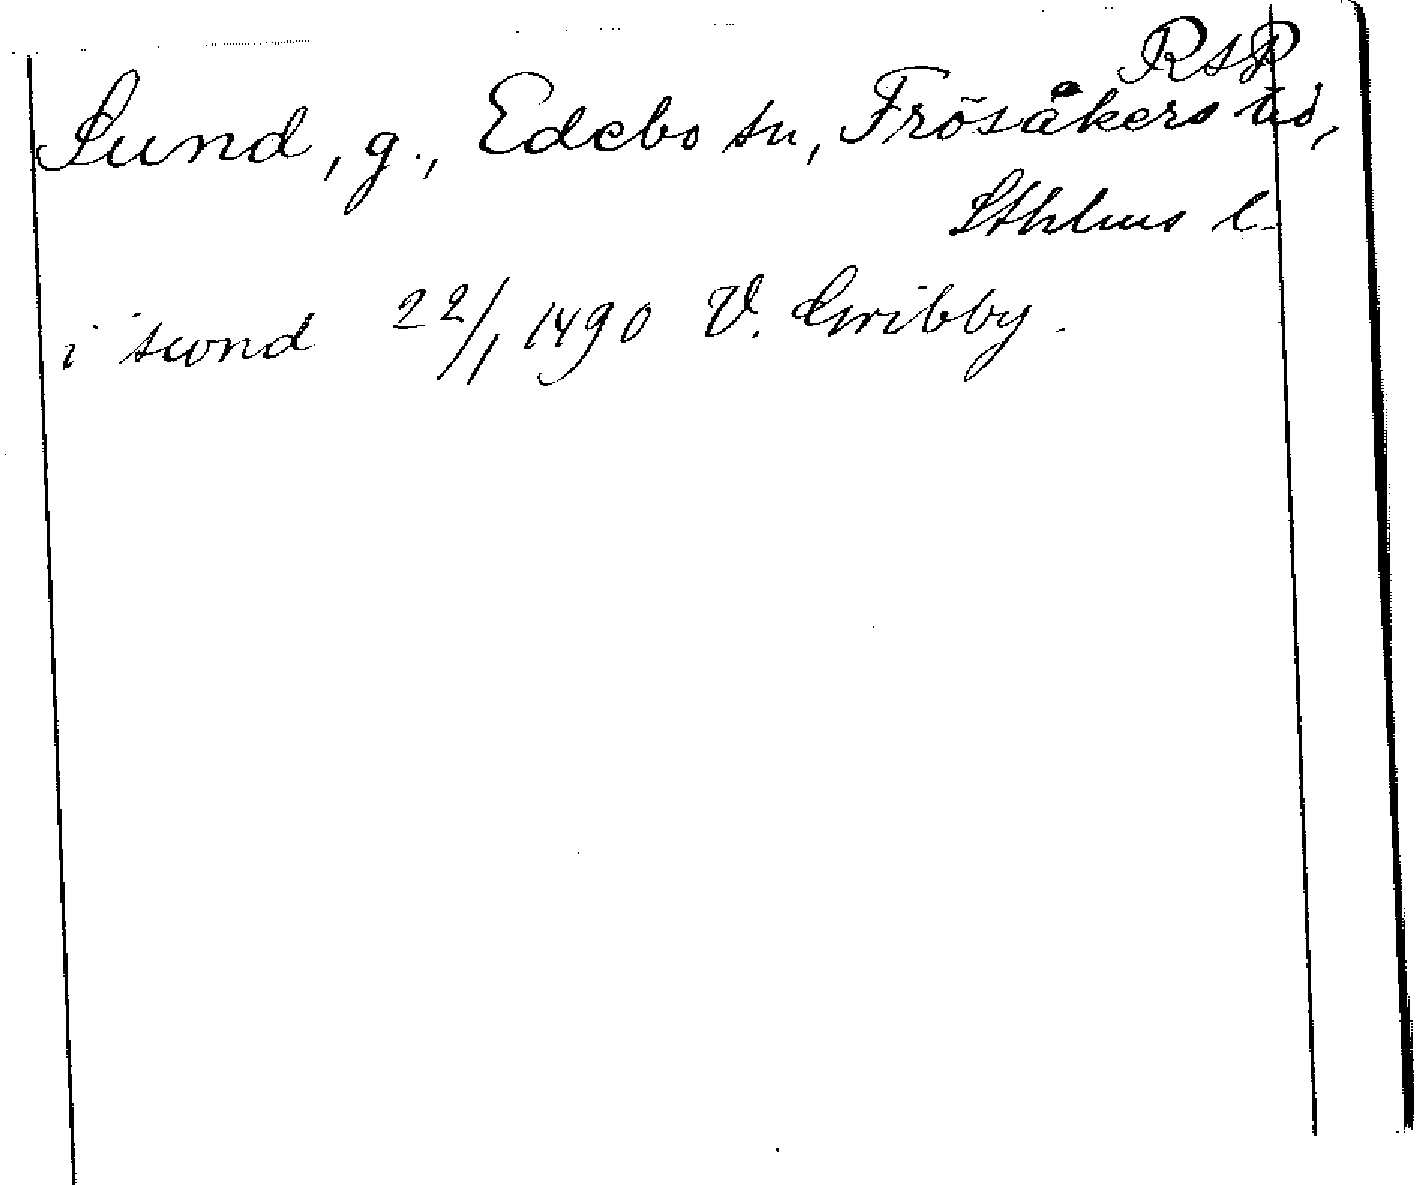 RAP
Sund, g., Edebo sn, Frösåkers hd,
Sthlms l.
i swnd 22/1 1490 V. Gribby.